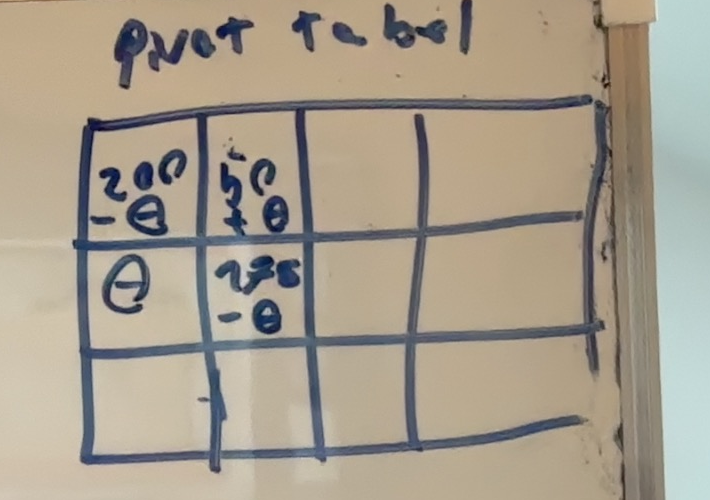 Pivot tabel
200 50
-θ +θ
θ 275
-θ